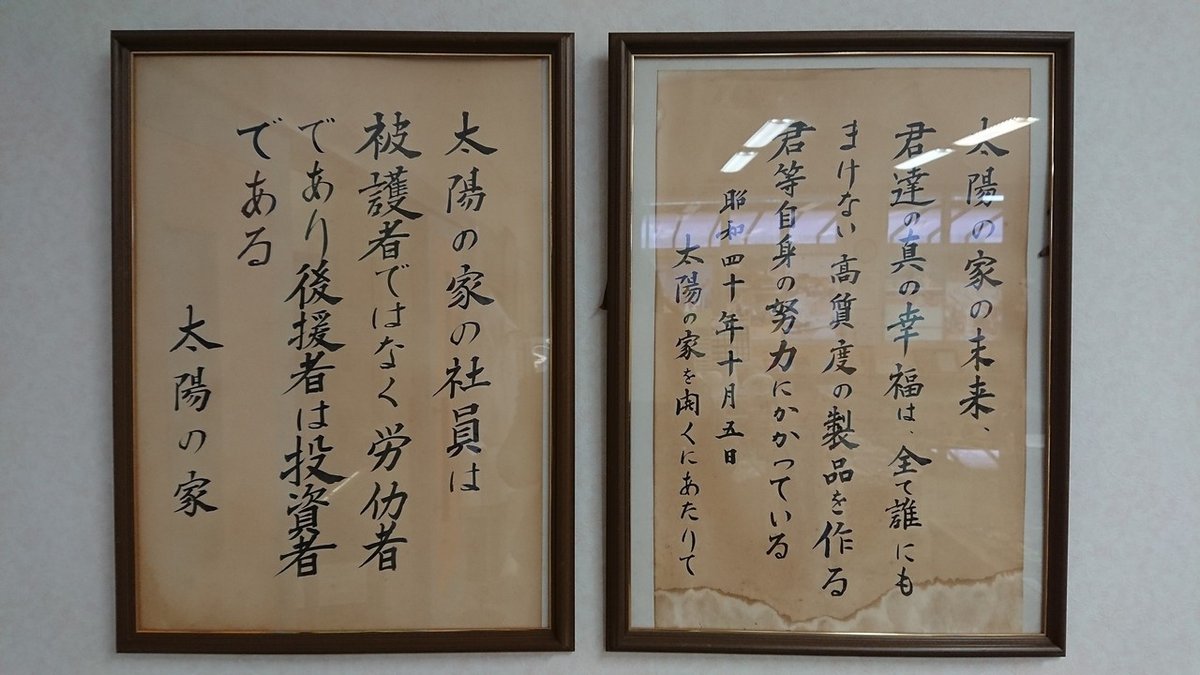 太陽の家の未来、
君達の真の幸福は、全て誰にも
まけない高質度の製品を作る
君等自身の努力にかかっている
昭和四十年十月五日
太陽の家を開くにあたりて
太陽の家の社員は
被護者ではなく労仂者
であり後援者は投資者
である
太陽の家